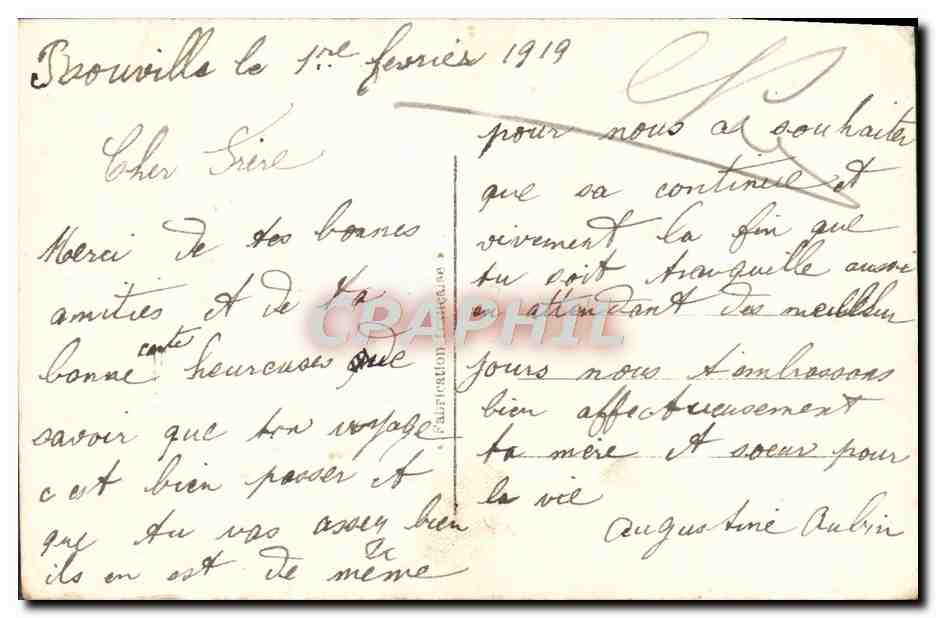 Brouville le 1re fevrier 1919
Cher Frère
Merci de tes bonnes
amities et de ta
bonne carte heureuse que
savoir que ton voyage
c est bien passer et
que tu vas assez bien
ils en est de même
pour nous a souhaiter
que sa continue et
vivement la fin que
tu soit tranquille aussi
en attendant des meilleur
jours nous t'embrassons
bien affectueusement
ta mère et soeur pour
la vie
Augustine Aubin
Fabrication française
CRAPHIL